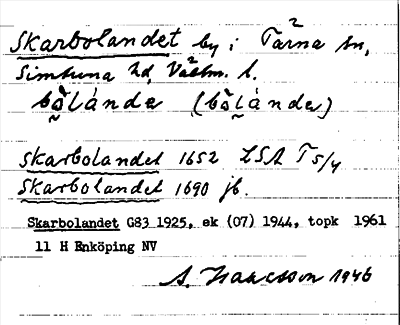 Skarbolandet by i Tärna sn,
Simtuna hd, Västm. l.
bo̰lánde (bo̰lánde)
Skarbolandet 1652 LSA T 5/4
Skarbolandet 1690 jb.
Skarbolandet G83 1925, ek (07) 1944, topk 1961
11 H Enköping NV
A. Isaacsson 1946